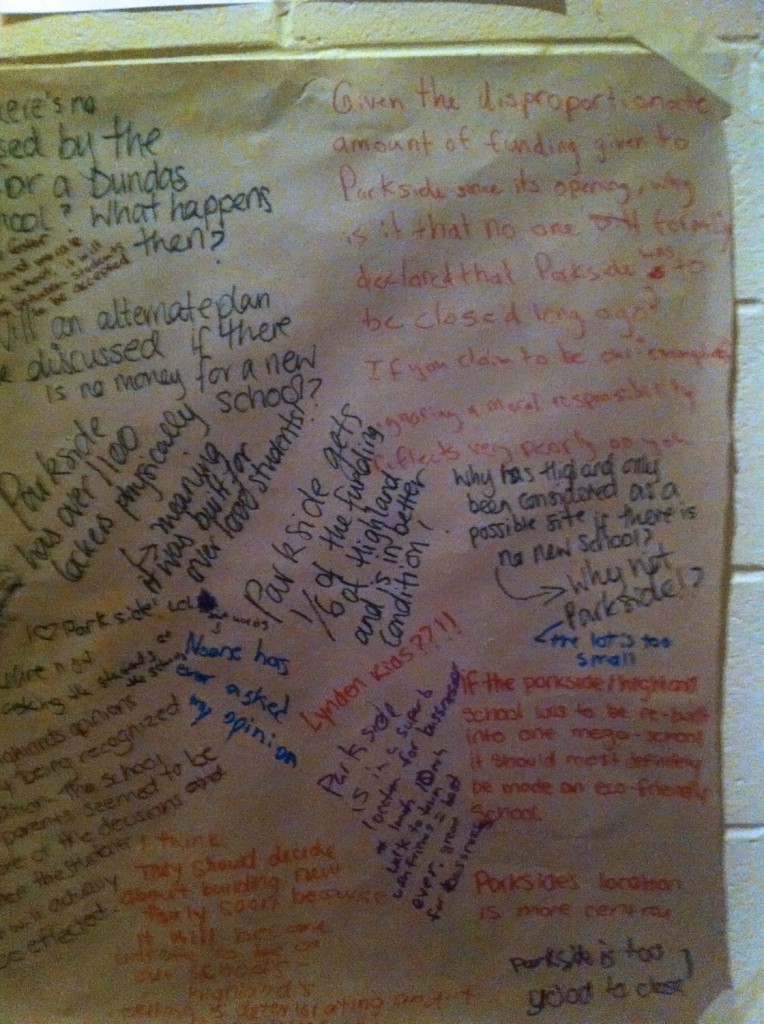 here's no
sed by the
or a Dundas
hool? What happens
then?
be accepted
Will an alternate plan
e discussed if there
is no money for a new
school?
Parkside
has over 1100
lockers physically
↳ meaning
it was built for
over 1000 students!?
Given the disproportionate
amount of funding given to
Parkside since its opening, why
is it that no one formally
declared that Parkside was to
be closed long ago?
If you claim to be our
ignoring a moral responsibility
reflects very poorly on you
Parkside gets
1/6 of the funding
of Highland
and is in better
condition!
Why has Highland only
been considered as a
possible site if there is
no new school?
→ Why not
Parkside!?
← the lot's too
small
I ♡ Parkside!
Noone has
ever asked
my opinion
Lynden Kids??!!
asking the students
opinions
y being recognized
The school
parents seemed to be
of the decisions and
the students
will actually
be effected.
Parkside
is in a superb
location for bussinesses
lunch 10min
walk to town
over
for bussinesses
If the parkside/highland
school was to be re-built
into one mega-school
it should most definitely
be made an eco-friendly
school.
I think
They should decide
about building new
fairly soon because
it will become
our schools
Highland's
ceiling is deteriorating
Parksides location
is more central
Parkside is too
good to close